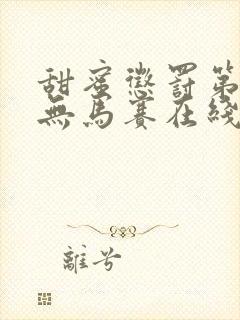 甜蜜懲罰第
無馬賽在綫
離兮